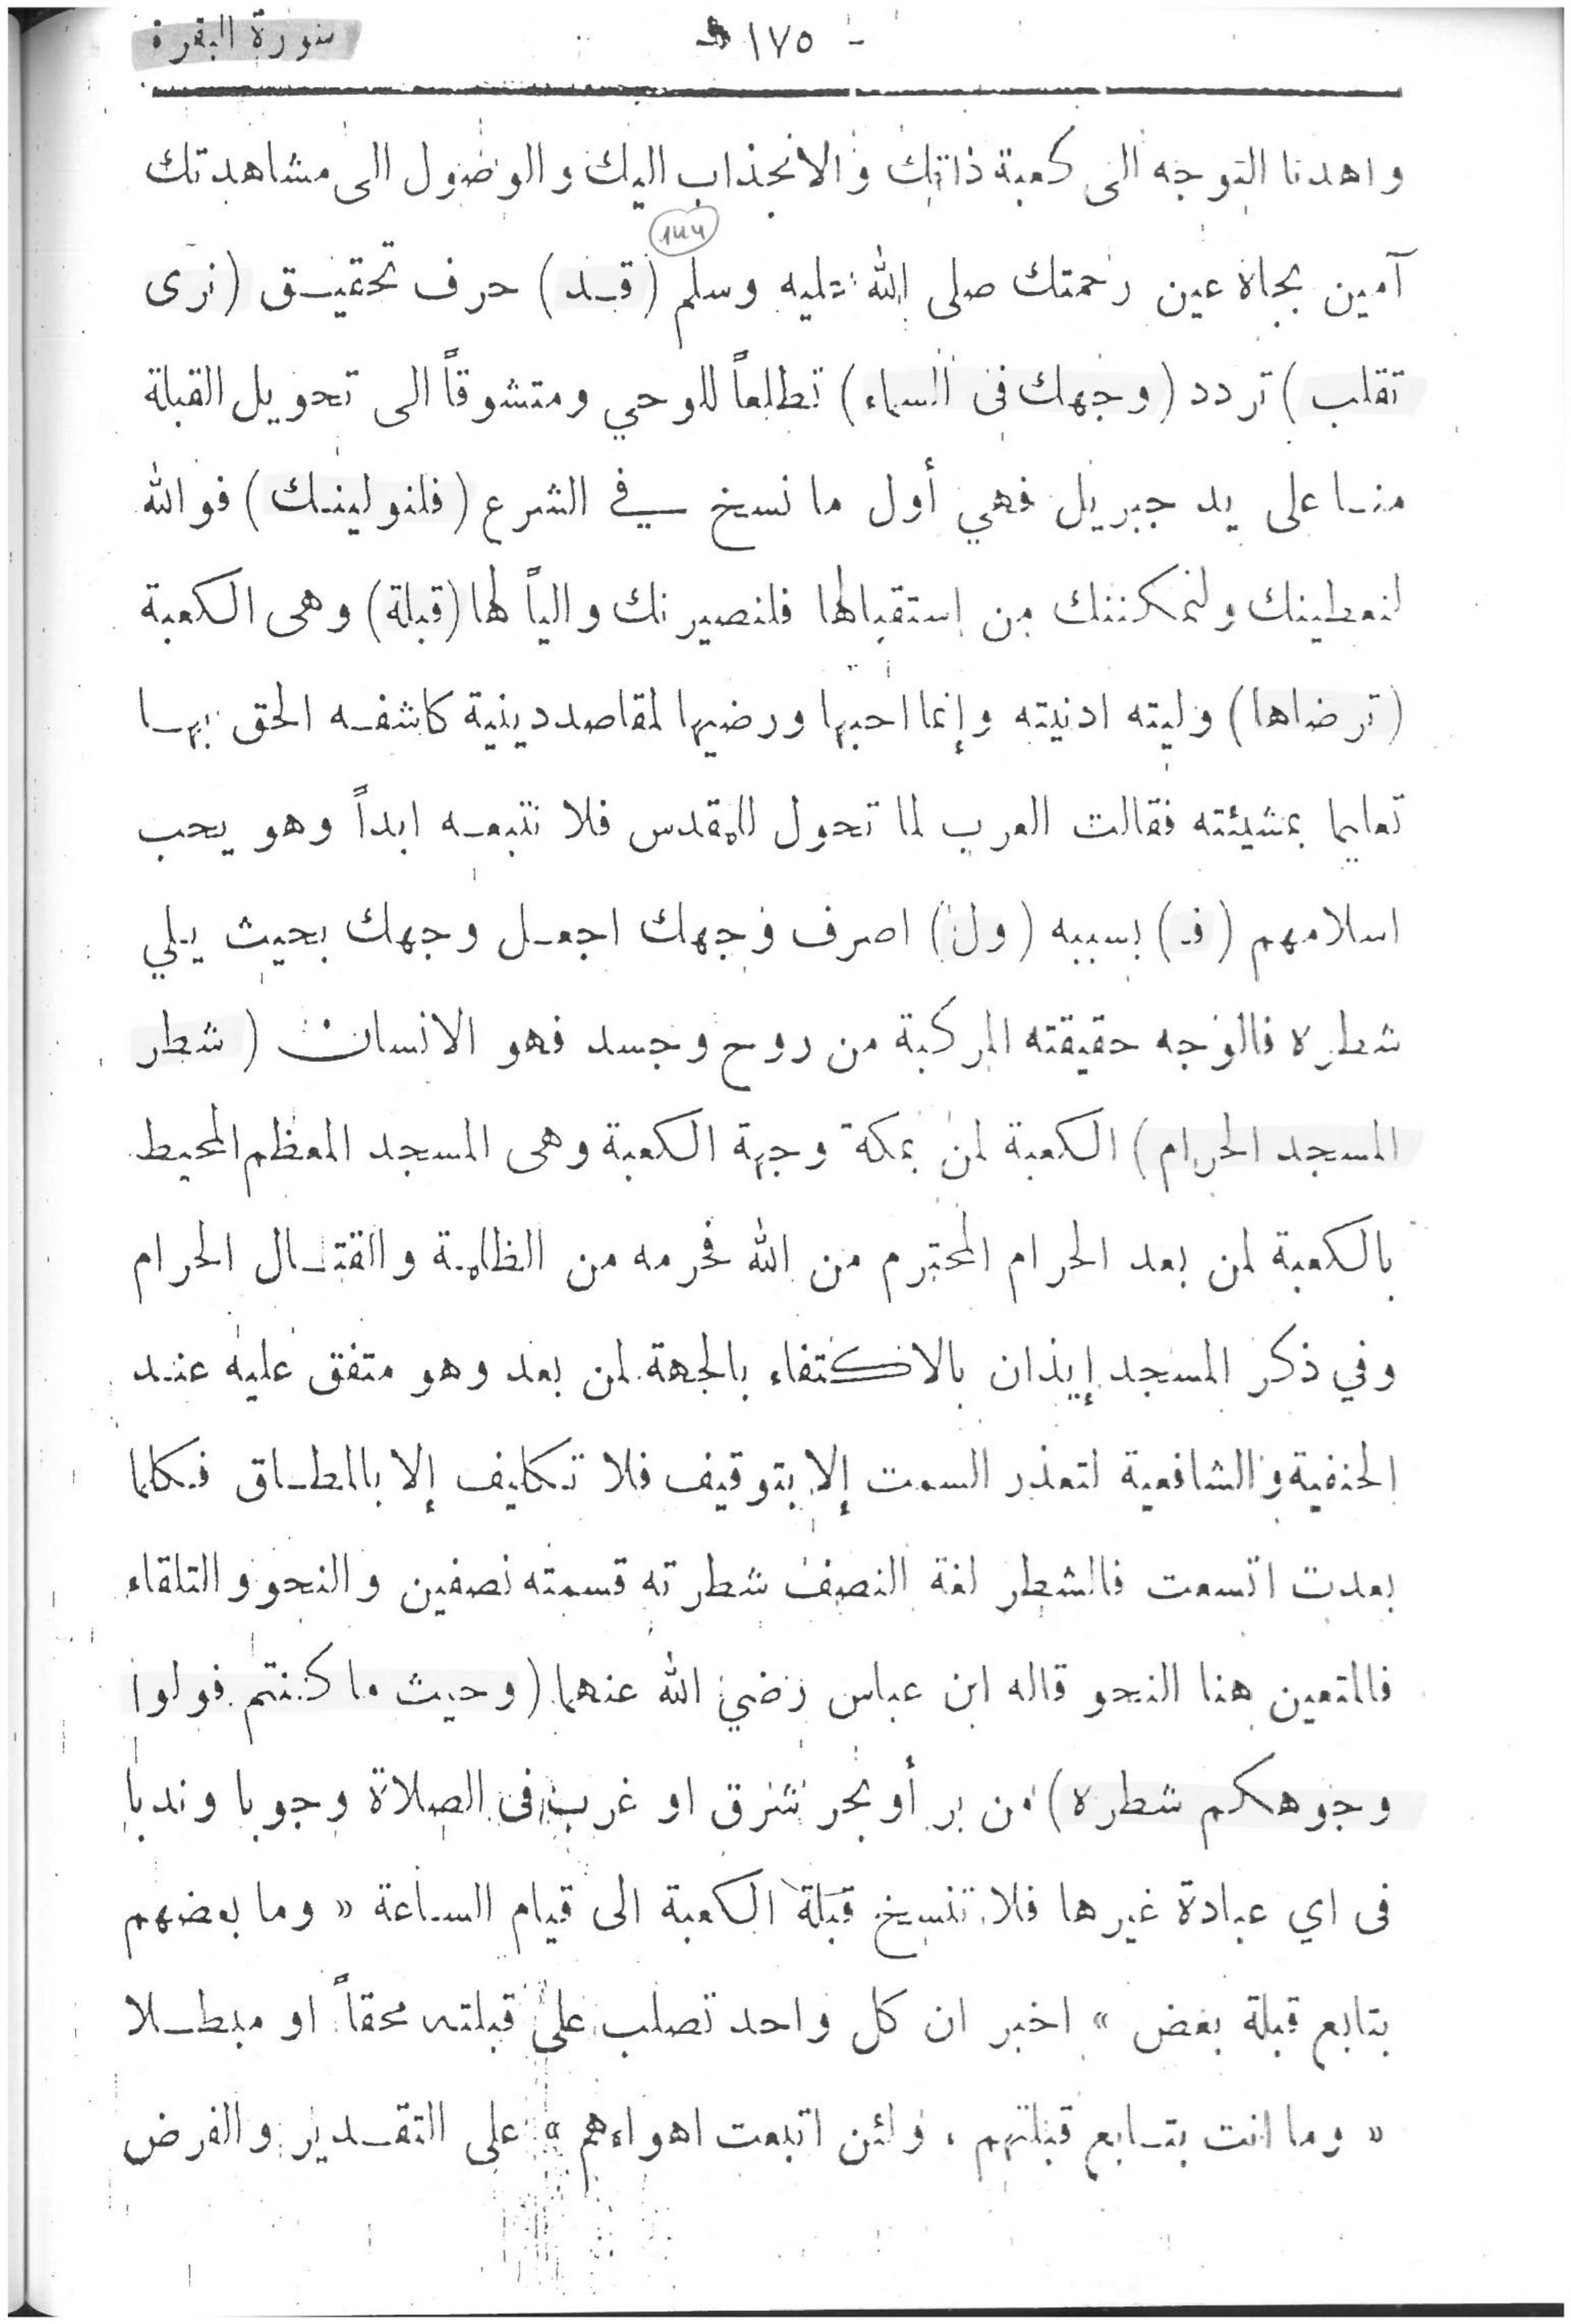 سورة البقرة
- ١٧٥ -
واهدنا التوجه الى كعبة ذاتك والانجذاب اليك والوصول الى مشاهدتك
144
آمين بجاه عين رحمتك صلى الله عليه وسلم (قد) حرف تحقيق (نرى
تقلب) تردد (وجهك فى السماء) تطلعاً للوحي ومتشوقاً الى تحويل القبلة
منا على يد جبريل فهي أول ما نسخ في الشرع (فلنولينك) فوالله
لنعطينك ولنمكننك من استقبالها فلنصيرنك والياً لها (قبلة) وهى الكعبة
(ترضاها) وليته ادنيته وإنما احبها ورضيها لمقاصد دينية كاشفه الحق بها
تعليما بمشيئته فقالت العرب لما تحول للمقدس فلا نتبعه ابداً وهو يحب
اسلامهم (فـ) بسببه (ول) اصرف وجهك اجعل وجهك بحيث يلي
شطره فالوجه حقيقته المركبة من روح وجسد فهو الانسان (شطر
المسجد الحرام) الكعبة لمن بمكة وجهة الكعبة وهى المسجد المعظم المحيط
بالكعبة لمن بعد الحرام المحترم من الله فحرمه من الظلمة والقتال الحرام
وفي ذكر المسجد إيذان بالاكتفاء بالجهة لمن بعد وهو متفق عليه عند
الحنفية والشافعية لتعذر السمت إلا بتوقيف فلا تكليف إلا بالمطاق فكلما
بعدت اتسعت فالشطر لغة النصف شطرته قسمته نصفين والنحو والتلقاء
فالمتعين هنا النحو قاله ابن عباس رضي الله عنهما (وحيث ما كنتم فولوا
وجوهكم شطره) من بر أو بحر شرق او غرب فى الصلاة وجوبا وندبا
فى اي عبادة غيرها فلا تنسخ قبلة الكعبة الى قيام الساعة « وما بعضهم
بتابع قبلة بعض » اخبر ان كل واحد تصلب على قبلته محقاً او مبطلا
« وما انت بتابع قبلتهم ، ولئن اتبعت اهواءهم » على التقدير والفرض